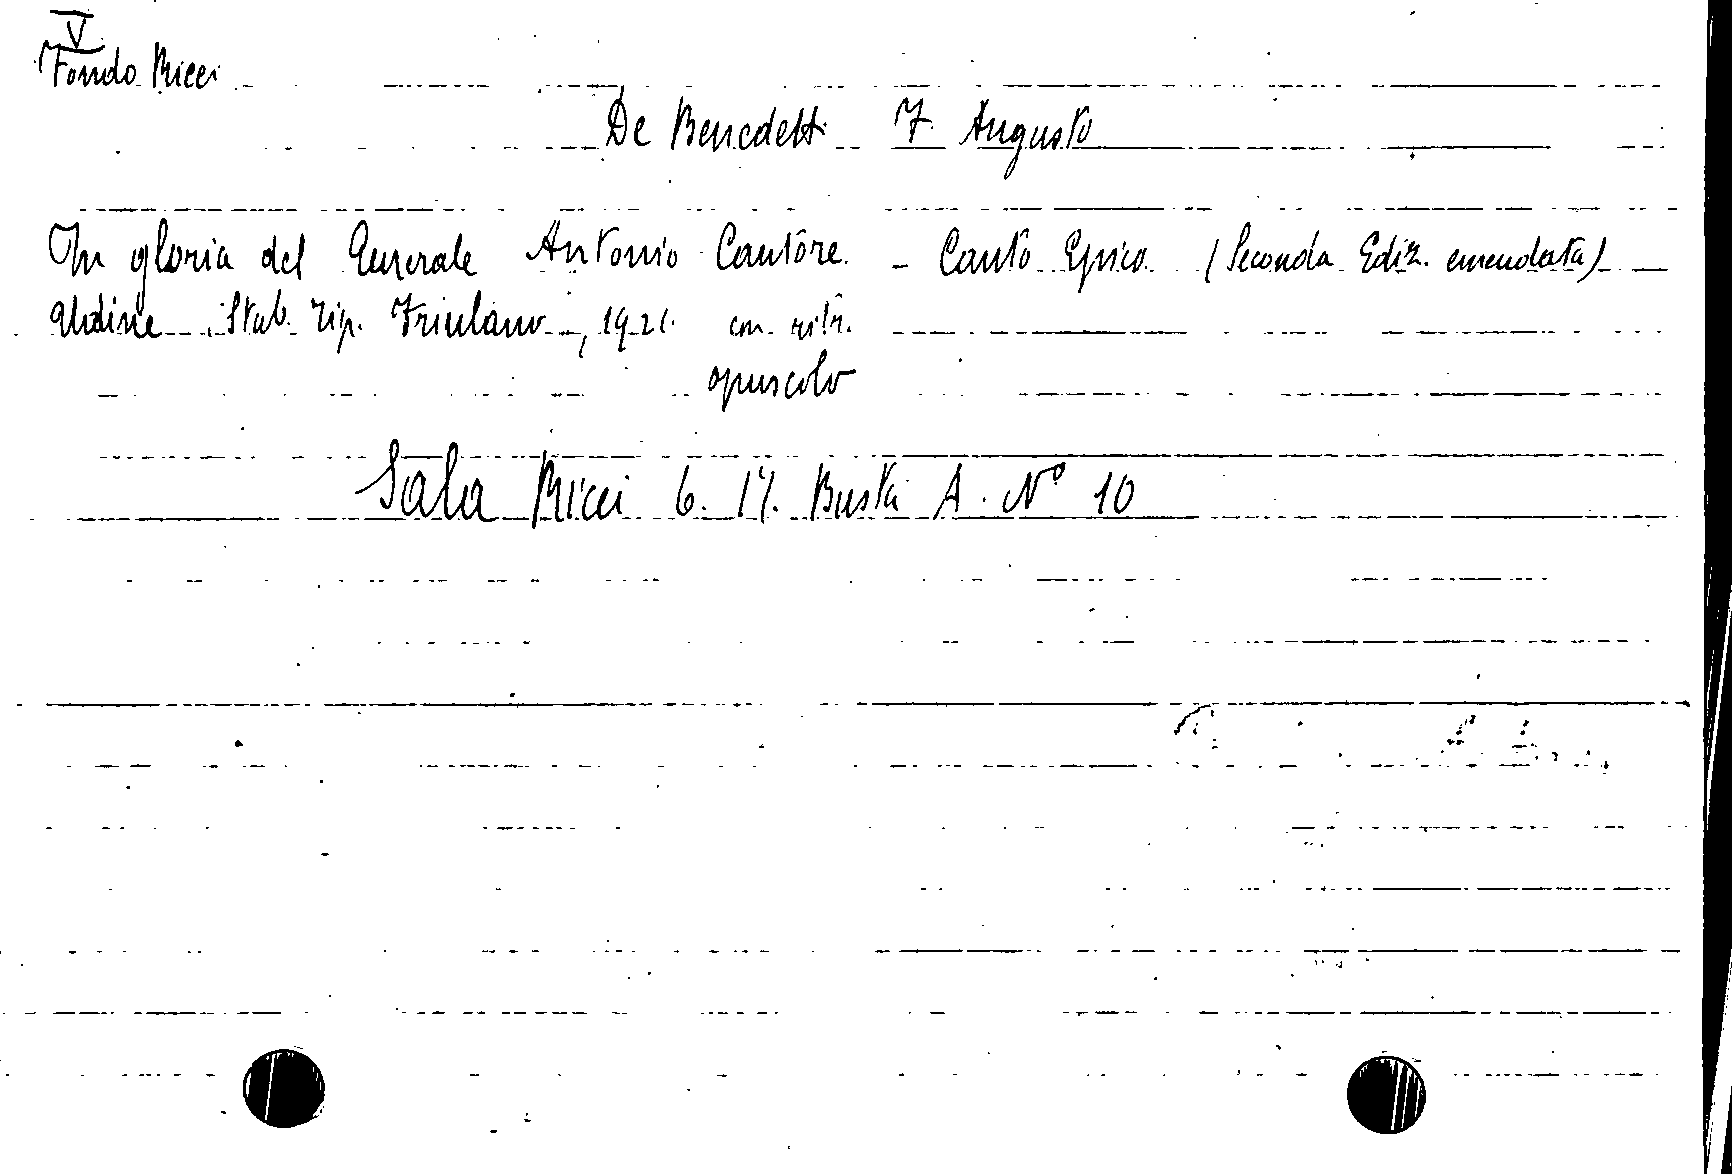 V
Fondo Ricci
De Benedetti F. Augusto
In gloria del Generale Antonio Cantore - Canto Epico (Seconda Ediz. emendata) -
Udine Stab. Tip. Friulano, 1921 con ritr.
opuscolo
Sala Ricci 6. 17. Busta A. N° 10